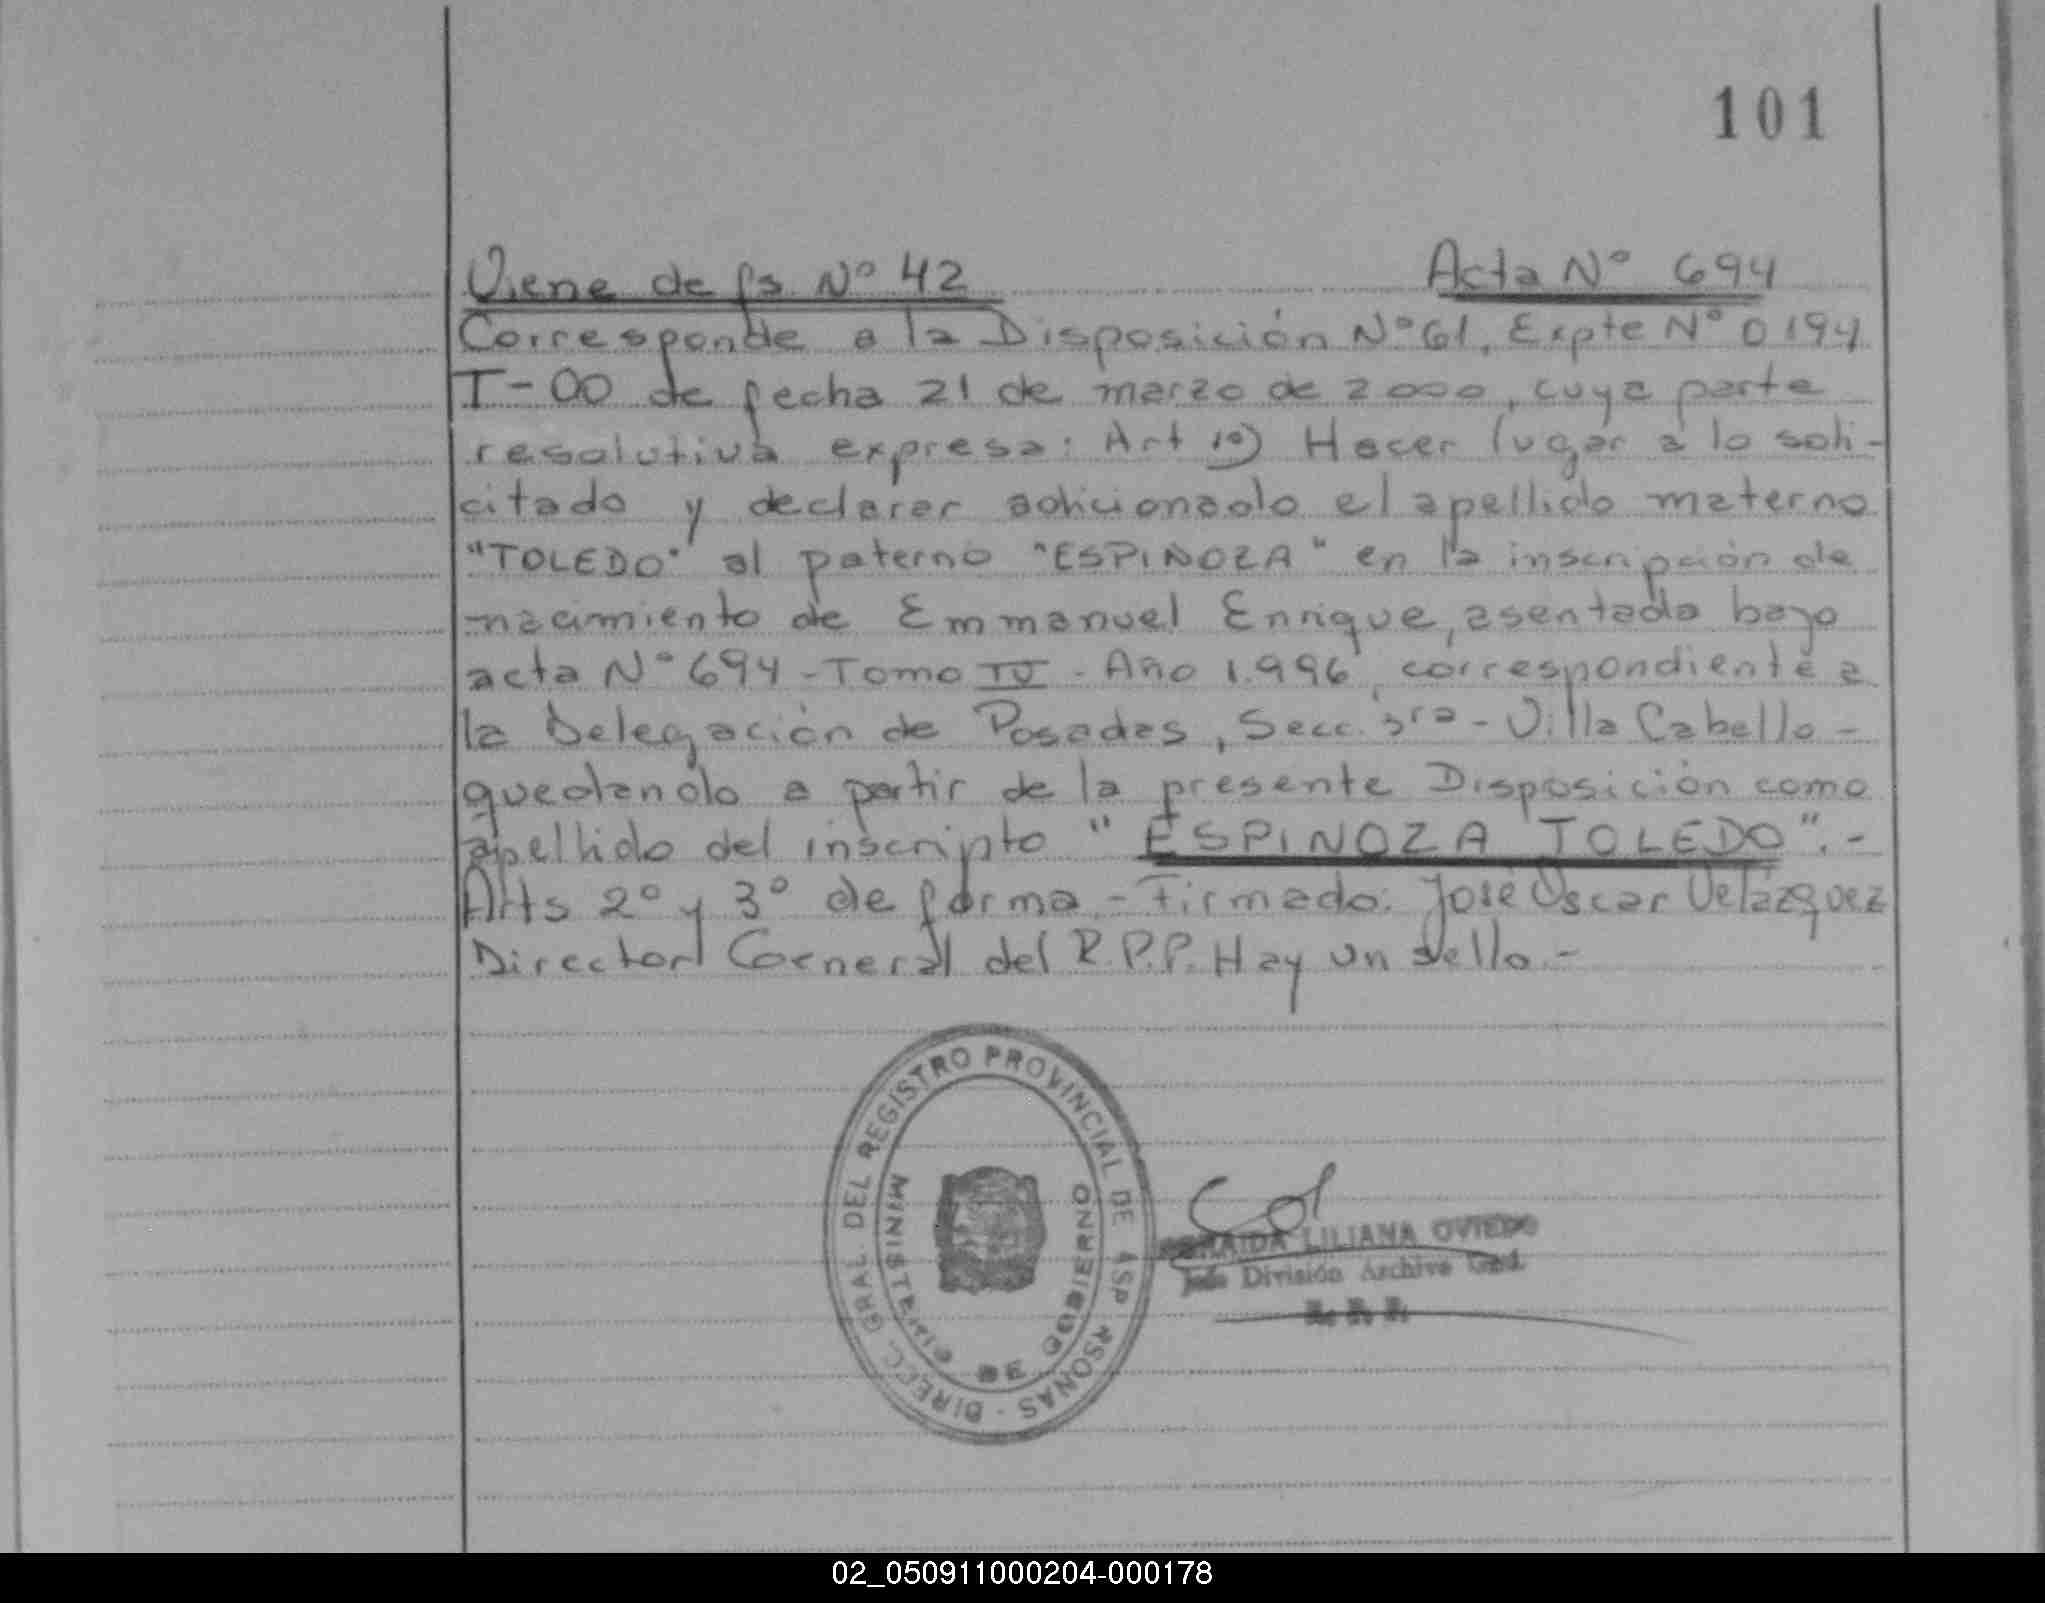 101
Viene de fs. Nº 42 Acta Nº 694
Corresponde a la Disposición Nº 61, Expte Nº 0194
T-00 de fecha 21 de marzo de 2000, cuya parte
resolutiva expresa: Art 1º) Hacer lugar a lo soli-
citado y declarar adicionado el apellido materno
"TOLEDO" al paterno "ESPINOZA" en la inscripción de
nacimiento de Emmanuel Enrique, asentada bajo
acta Nº 694 - Tomo IV - Año 1.996, correspondiente a
la Delegación de Posadas, Secc. 3ra - Villa Cabello -
quedando a partir de la presente Disposición como
apellido del inscripto "ESPINOZA TOLEDO".-
Arts 2º y 3º de forma.- Firmado: José Oscar Velázquez
Director General del R.P.P. Hay un sello.-
DIRECC. GRAL. DEL REGISTRO PROVINCIAL DE
MINISTERIO DE GOBIERNO
LILIANA OVIEDO
Jefe División Archivo Gral.
R. P. P.
02_050911000204-000178